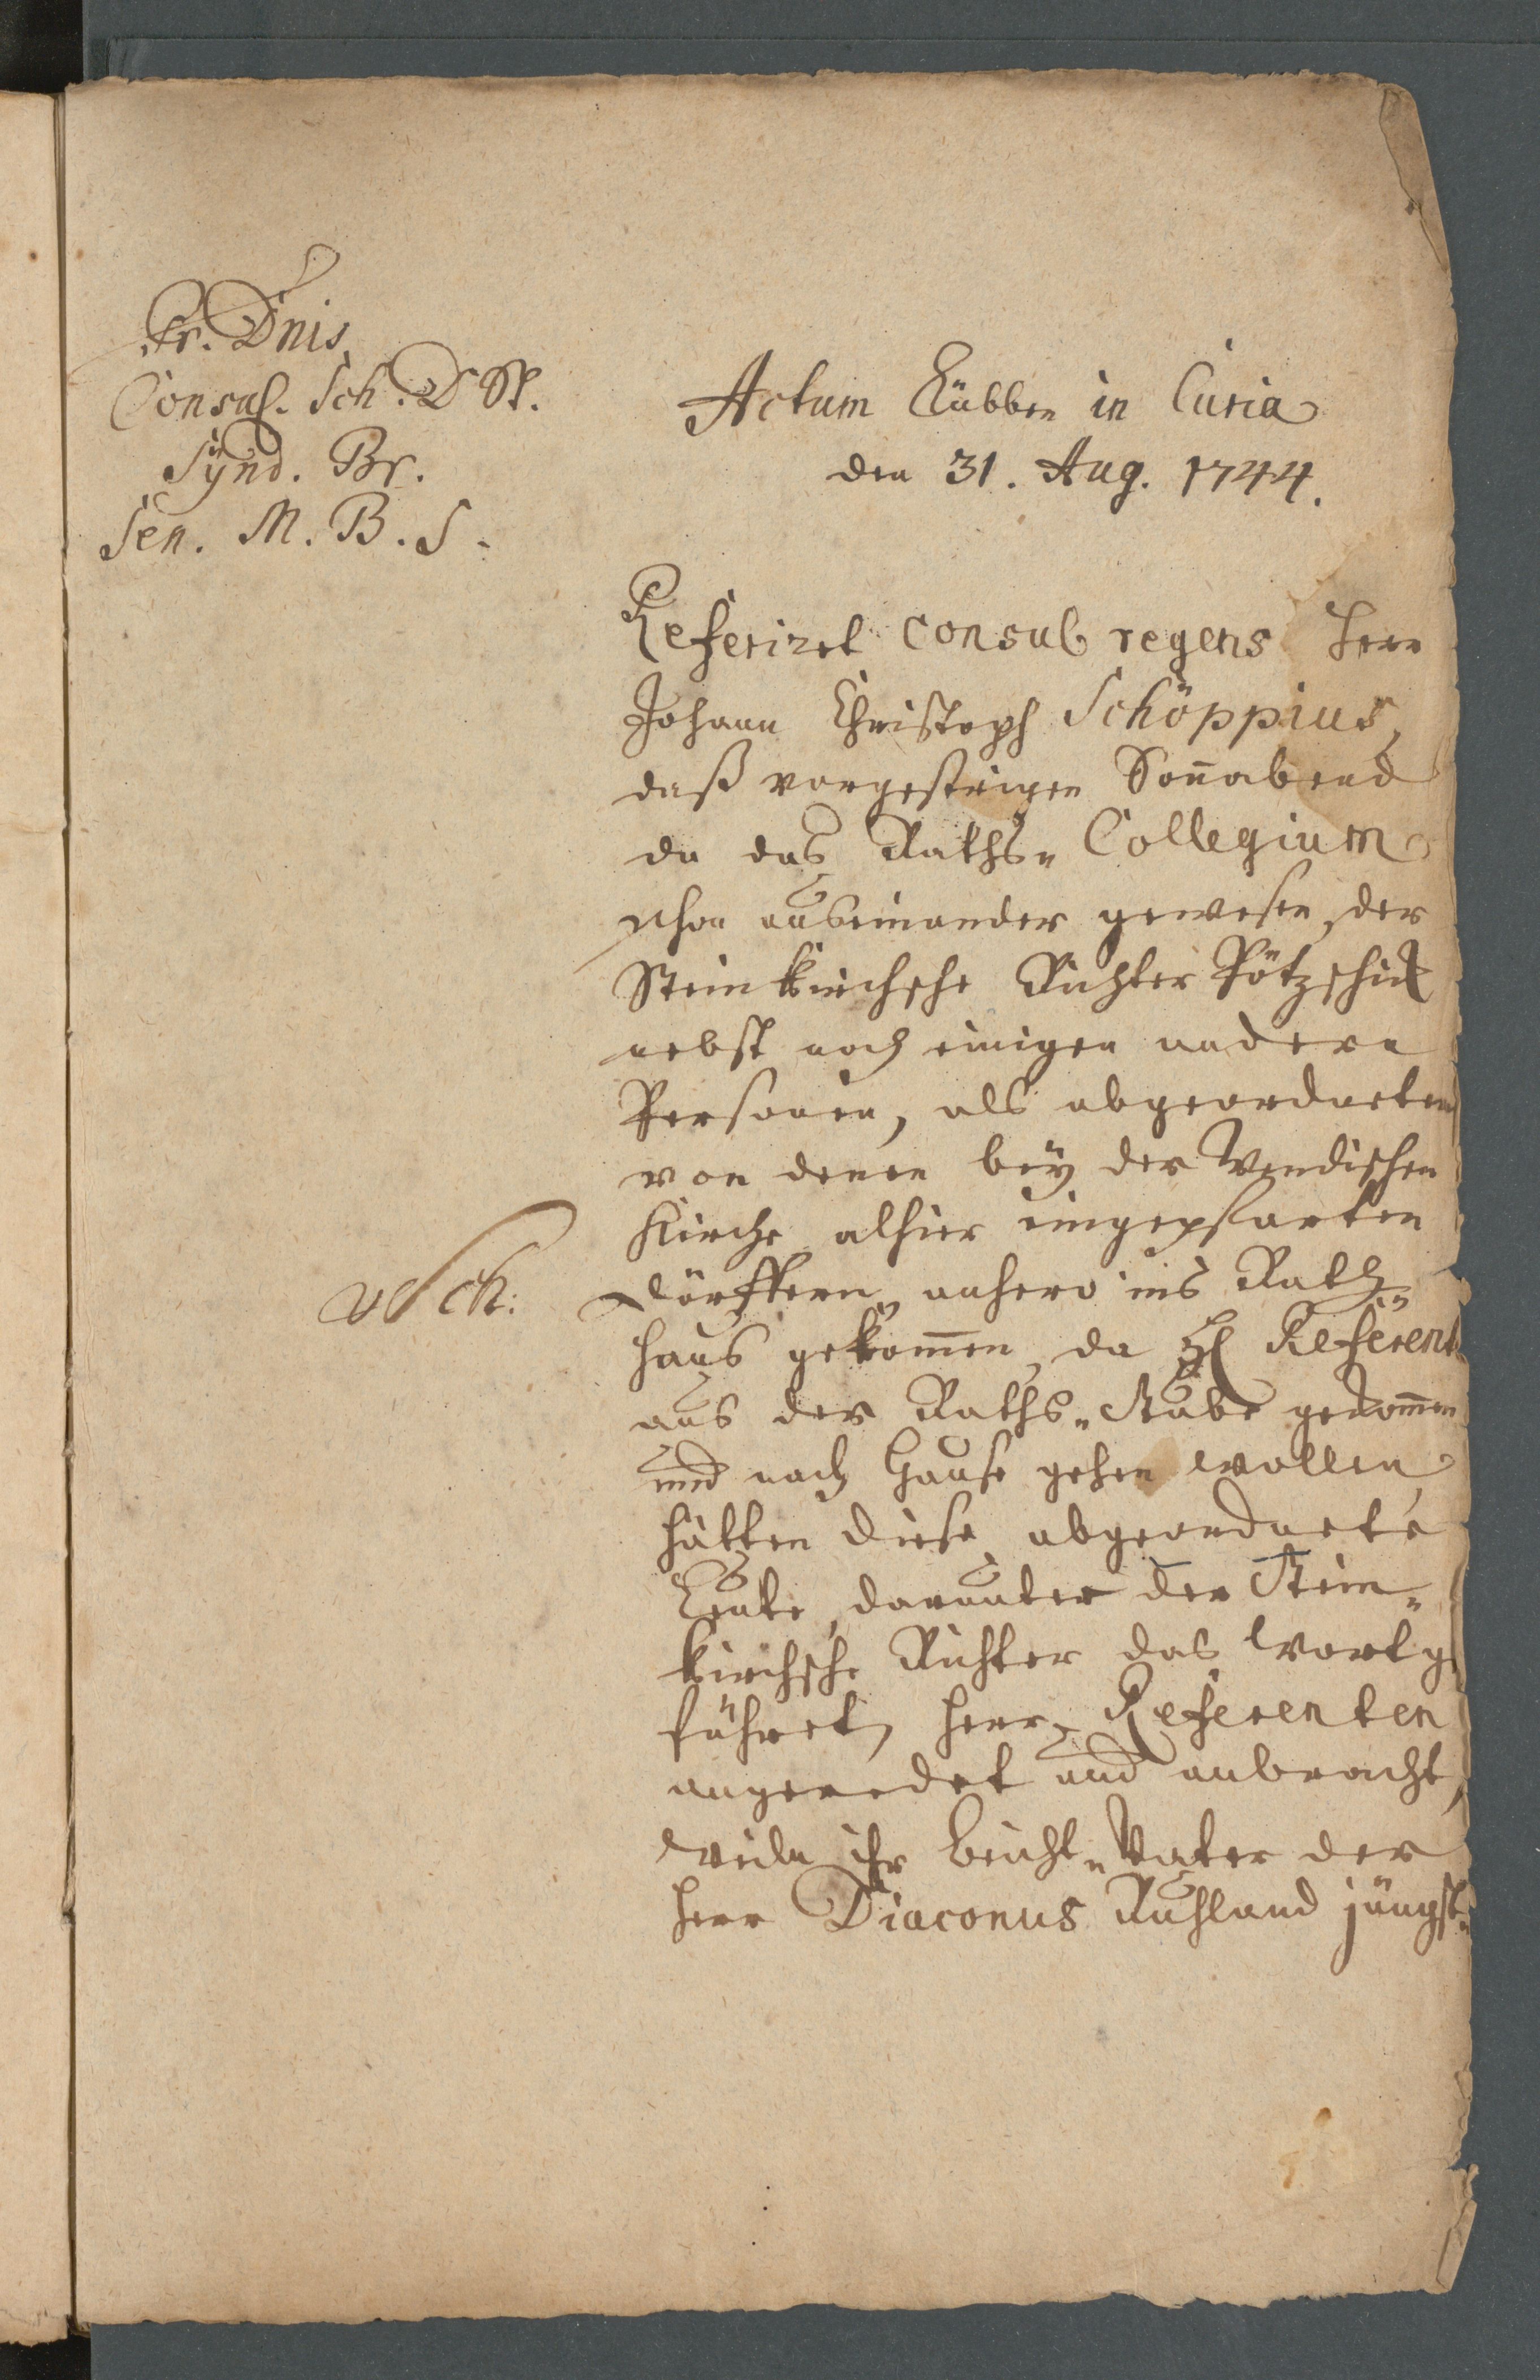 Pr. Dnis
Consul. Sch. D St.
Synd. Br.
Sen. M. B. S.
Actum Lübben in Curia
den 31. Aug. 1744.
Referiret Consul regens Herr
Johann Christoph Schöppius,
daß vorgestrigen Soñabend
da das Raths„ Collegium
schon auseinander gewesen, der
Steinkirchsche Richter Pötzschick
nebst noch einigen andern
Personen, als abgeordneten
von denen bey der Wendischen
Kirche alhier eingepfarten
Sch:
Dörffern, anhero ins Rath„
haus gekom̃en, da H Referent
aus der Raths„Stube gekom̃en
und nach Hause gehen wollen
hätten diese abgeordnete
Leute, darunter der Stein„
kirchsche Richter das Wort ge
führet, Herr Referenten
angeredet und anbracht,
weiln ihr Beicht„Vater der
Herr Diaconus Ruhland jüngst„